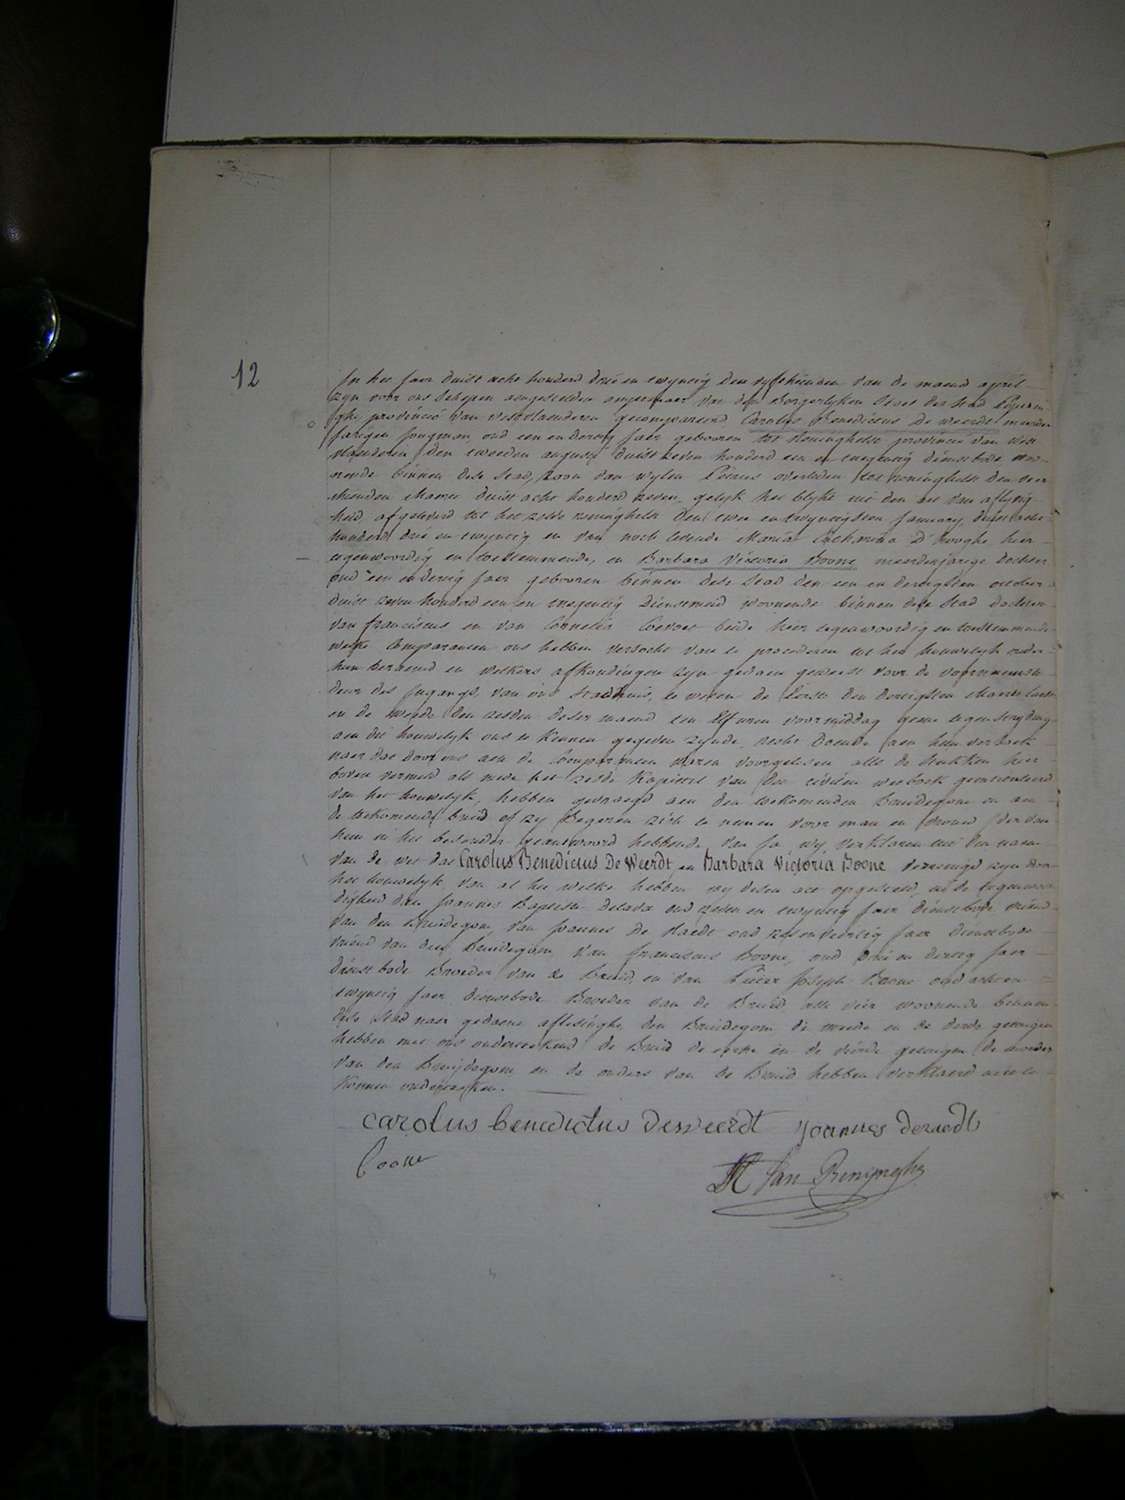 12
In het Jaer duist acht honderd drie en twyntig den vyfthienden van de maend april
zyn voor ons schepen aengestelden ampenaer van den Borgerlyken Staet der Stad Poperin-
ghe provincie van Westvlanderen gecompareerd Carolus Benedictus De weerdt meerder
jarigen jongman, oud een en dertig jaer gebooren tot Reninghelst provincie van West
vlanderen den tweeden augusty duist zeven honderd een en negentig dienstbode woo-
nende binnen dese Stad, zoon van wylen Petrus overleden tot Reninghelst den
thienden Maerte duist acht honderd zeven, gelyk het blykt uit den act van aflyvig-
heid afgeleverd tot het zelve reninghelst den twee en twyntigsten January duist acht
honderd drie en twyntig en van noch levende Maria Catharina D'hooghe hier
tegenwoordig en toestemmende, en Barbara Victoria Boone meerderjarige dochter
oud een en dertig jaer gebooren binnen dese Stad den een en dertigsten october
duist zeven honderd een en negentig dienstmeid woonende binnen dese Stad dochter
van franciscus en van Cornelia Coevoet beide hier tegenwoordig en toestemmende
welke Comparanten ons hebben versocht van te procederen tot het houwelyk onder
hun beraemd en welkers afkondingen zyn gedaen geweest voor de voornaemste
deur des Ingangs van ons Stadhuis, te weten de Eerste den dertigsten Maerte laest
en de tweede den zesden deser maend ten Elf uren voormiddag geene tegenstryding
aen dit houwelyk ons te kennen gegeven zynde, recht doende aen hun versoek
naer dat door ons aen de Comparanten waren voorgelesen alle de stukken hier
boven vermeld als mede het zesde Kapittel van den civielen wetboek geintituleerd
van het houwelyk, hebben gevraegd aen den toekomenden Bruidegom en aen
de toekomende bruid of zy begeren zich te nemen voor man en vrouw, ider van
hun in het besonder geantwoord hebbende van Ja wy verklaren uit den naem
van de wet dat Carolus Benedictus De Weerdt en Barbara Victoria Boone vereenigd zyn door
het houwelyk, van al het welke hebben wy desen act opgesteld, in de tegenwoor-
digheid van Joannes Baptiste oud zeven en twyntig jaer dienstbode vriend
van den Bruidegom, van Joannes De Raedt oud jaer dienstbode
vriend van den Bruidegom, van franciscus Boone, oud drie en dertig jaer
dienstbode Broeder van de Bruid, en van Pieter Joseph Boone oud acht en
twyntig jaer dienstbode Broeder van de Bruid alle vier woonende binnen
dese Stad naer gedaene aflesinghe den Bruidegom de tweede en de derde getuigen
hebben met ons onderteekend de Bruid de eerste en de vierde getuigen de moeder
van den Bruidegom en de ouders van de Bruid hebben verklaerd niet te
konnen onderteeken.
carolus benedictus deweerdt Joannes deraedt
Boone
Van Renynghe